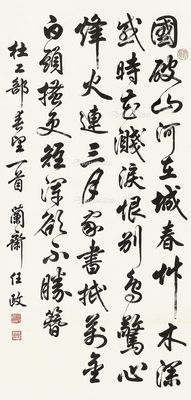 國破山河在城春草木深
感時花濺淚恨別鳥驚心
烽火連三月家書抵萬金
白頭搔更短渾欲不勝簪
杜工部春望一首 蘭齋任政